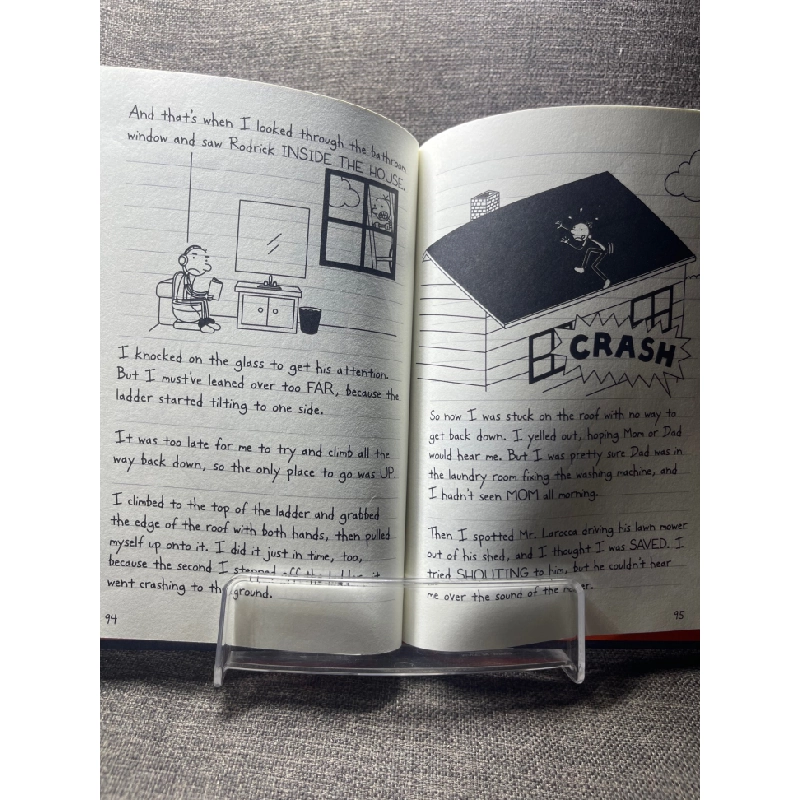 And that's when I looked through the bathroom
window and saw Rodrick INSIDE THE HOUSE.
I knocked on the glass to get his attention.
But I must've leaned over too FAR, because the
ladder started tilting to one side.
It was too late for me to try and climb all the
way back down, so the only place to go was UP.
I climbed to the top of the ladder and grabbed
the edge of the roof with both hands, then pulled
myself up onto it. I did it just in time, too,
because the second I stepped off the ladder, it
went crashing to the ground.
94
CRASH
So now I was stuck on the roof with no way to
get back down. I yelled out, hoping Mom or Dad
would hear me. But I was pretty sure Dad was in
the laundry room fixing the washing machine, and
I hadn't seen MOM all morning.
Then I spotted Mr. Larocca driving his lawn mower
out of his shed, and I thought I was SAVED. I
tried SHOUTING to him, but he couldn't hear
me over the sound of the mower.
95